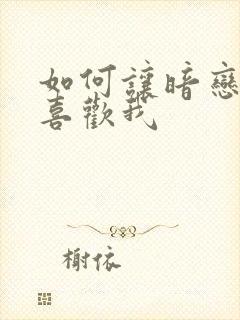 如何讓暗戀
喜歡我
榭依